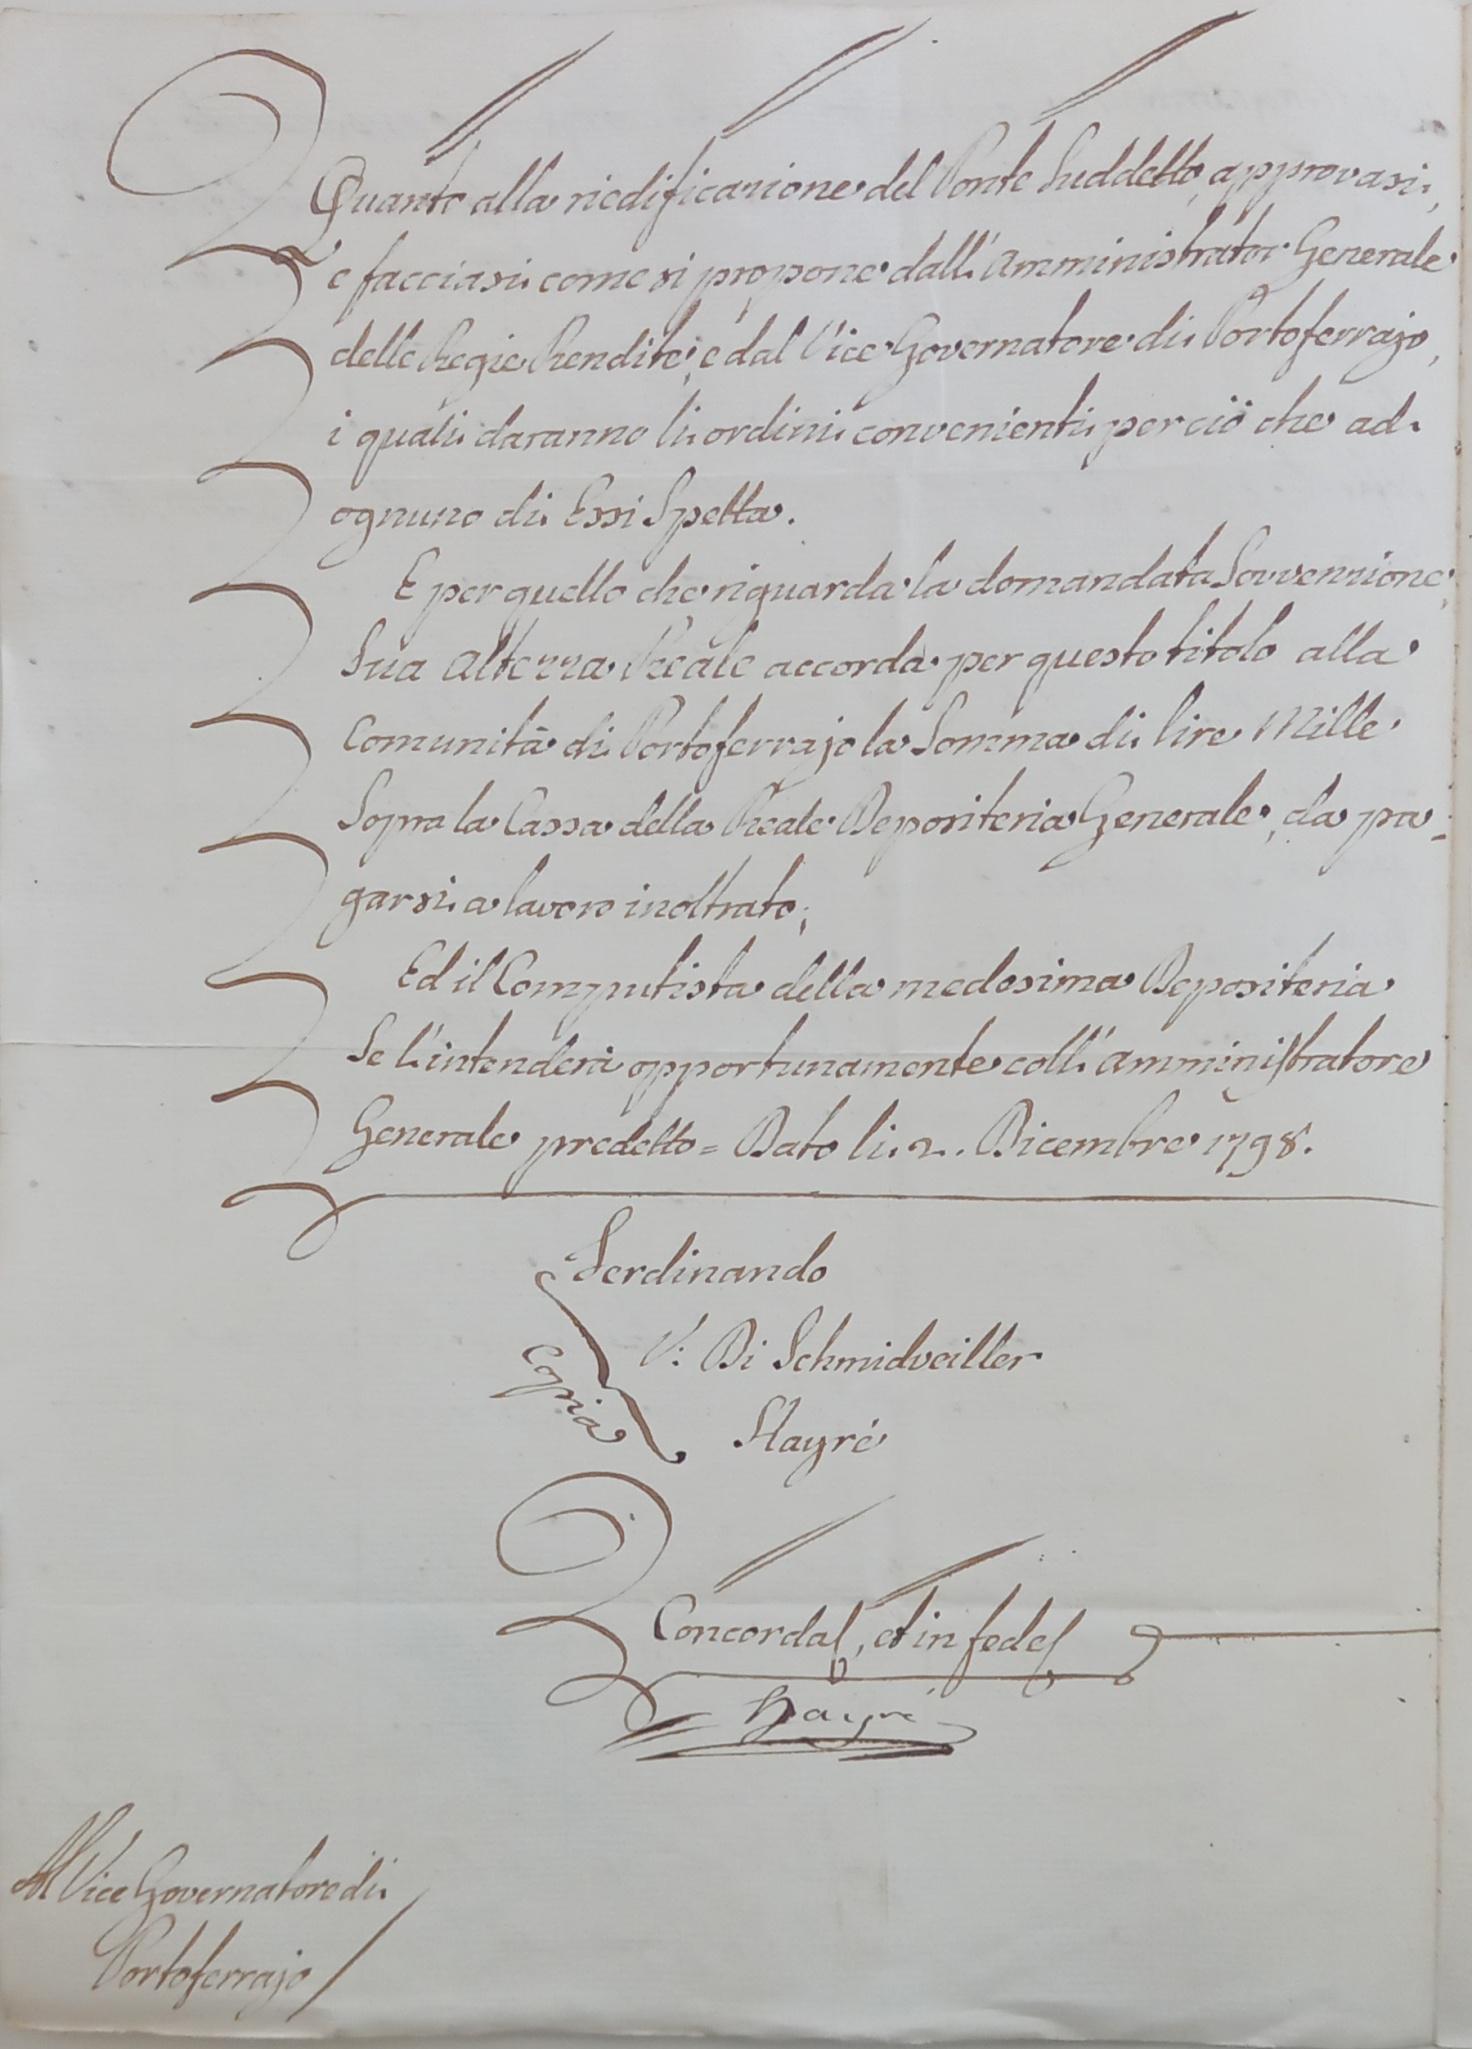 Quanto alla riedificazione del Ponte Suddetto, approvasi,
e facciasi come si propone dall'Amministrator Generale
delle Regie Rendite, e dal Vice Governatore di Portoferrajo,
i quali daranno li ordini convenienti per ciò che ad
ognuno di Essi Spetta.
E per quello che riguarda la domandata Sovvenzione,
Sua Altezza Reale accorda per questo titolo alla
Comunità di Portoferrajo la Somma di lire Mille
Sopra la Cassa della Reale Depositeria Generale, da pa=
garsi a lavoro inoltrato;
Ed il Computista della medesima Depositeria
Se l'intenderà opportunamente coll'Amministratore
Generale predetto = Dato li 2. Dicembre 1798.
Ferdinando
V: Di Schmidveiller
Hayré
Copia
Concorda, et in fede
Hayré
Al Vice Governatore di
Portoferrajo